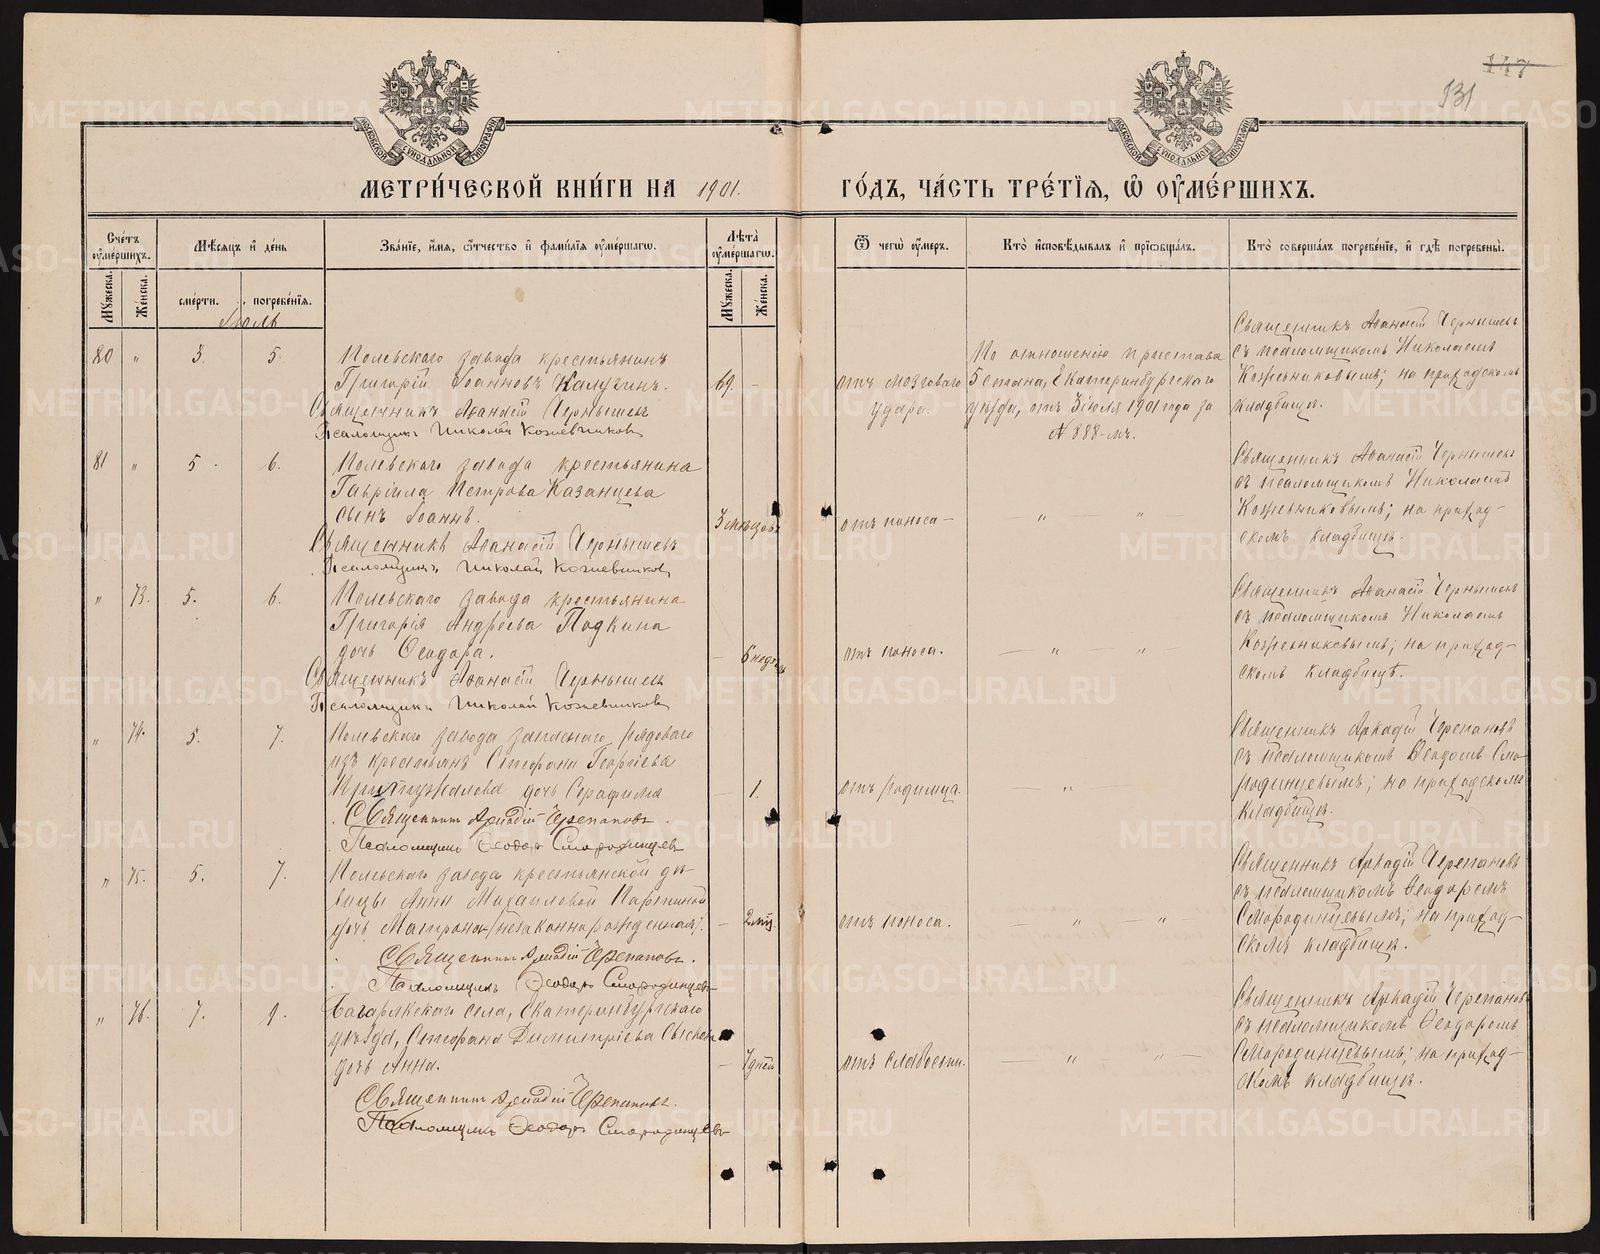 147
131
МОСКОВСКОЙ СѴНОДАЛЬНОЙ ТИПОГРАФІИ
МОСКОВСКОЙ СѴНОДАЛЬНОЙ ТИПОГРАФІИ
МЕТРИ́ЧЕСКОЙ КНИ́ГИ НА 1901. ГО́ДЪ, ЧА́СТЬ ТРЕ́ТІЯ, Ѡ ОУМЕ́РШИХЪ.
Сче́тъ оуме́ршихъ.
Мѣсяцъ и де́нь
Зва́нїе, и́мя, о́тчество и фами́лїя оуме́ршагѡ.
Лѣ́та оуме́ршагѡ.
Ѿ чегѡ̀ оу́меръ.
Кто̀ и҆сповѣ́дывалъ и҆ прїѡбща́лъ.
Кто̀ соверша́лъ погребе́нїе, и҆ гдѣ̀ погребены̀.
Мꙋ́жеска.
Же́нска.
сме́рти.
погребе́нїя.
Мꙋ́жеска.
Же́нска.
Іюль
80 " 3. 5.
Полевскаго завода крестьянинъ
Григорій Іоанновъ Калугинъ.
Священникъ Аѳанасій Чернышевъ
Псаломщикъ Николай Кожевниковъ
69. -
отъ мозговаго
удара.
По отношенію пристава
5 стана, Екатеринбургскаго
уѣзда, отъ 3 іюля 1901 года за
№ 888-мъ.
Священникъ Аѳанасій Чернышевъ
съ псаломщикомъ Николаемъ
Кожевниковымъ; на приходскомъ
кладбищѣ.
81 " 5. 6.
Полевскаго завода крестьянина
Гавріила Петрова Казанцева
сынъ Іоаннъ.
Священникъ Аѳанасій Чернышевъ
Псаломщикъ Николай Кожевниковъ
3 мѣсяцовъ
отъ поноса -
— " — " —
Священникъ Аѳанасій Чернышевъ
съ псаломщикомъ Николаемъ
Кожевниковымъ; на приход-
скомъ кладбищѣ.
" 73. 5. 6.
Полевскаго завода крестьянина
Григорія Андреева Подкина
дочь Ѳеодора.
Священникъ Аѳанасій Чернышевъ
Псаломщикъ Николай Кожевниковъ
- 6 недѣль
отъ поноса.
— " — "
Священникъ Аѳанасій Чернышевъ
съ псаломщикомъ Николаемъ
Кожевниковымъ; на приход-
скомъ кладбищѣ.
" 74. 5. 7.
Полевскаго завода запаснаго рядоваго
изъ крестьянъ Стефана Георгіева
дочь Серафима
Священникъ Аркадій Черепановъ.
Псаломщикъ Ѳеодоръ Смородинцевъ
- 1.
отъ родимца.
— "
Священникъ Аркадій Черепановъ
съ псаломщикомъ Ѳеодоромъ Смо-
родинцевымъ; на приходскомъ
кладбищѣ.
" 75. 5. 7.
Полевскаго завода крестьянской дѣ-
вицы Анны Михаиловой
дочь Матрона (незаконнорожденная).
Священникъ Аркадій Черепановъ.
Псаломщикъ Ѳеодоръ Смородинцевъ
- 2 мѣс.
отъ поноса.
— " — "
Священникъ Аркадій Черепановъ
съ псаломщикомъ Ѳеодоромъ
Смородинцевымъ; на приход-
скомъ кладбищѣ.
" 76. 7. 9.
Багарякскаго села, Екатеринбургскаго
уѣзда, Стефана Димитріева
дочь Анна.
Священникъ Аркадій Черепановъ.
Псаломщикъ Ѳеодоръ Смородинцевъ
- 7 дней
отъ слабости.
— " " —
Священникъ Аркадій Черепановъ
съ псаломщикомъ Ѳеодоромъ
Смородинцевымъ; на приход-
скомъ кладбищѣ.
METRIKI.GASO-URAL.RU